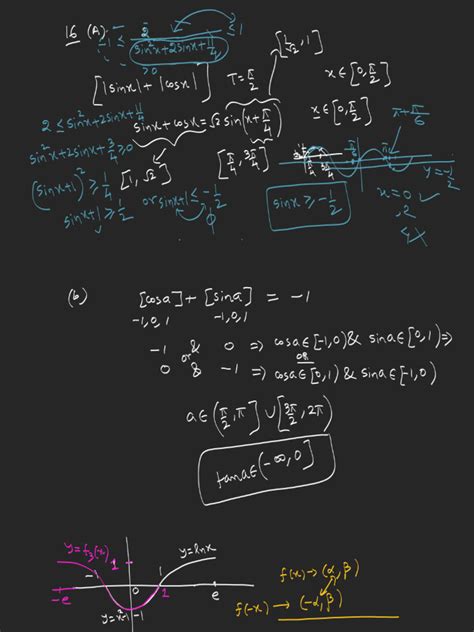 16 (A) -1 ≤ 2/(sin²x+2sinx+1/4) ≤ 1
>0
[1/√2, 1]
[|sinx| + |cosx|] T=π/2 x∈[0,π/2]
2 ≤ sin²x+2sinx+1/4
sinx+cosx = √2 sin(x+π/4) x∈[0,π/2]
π+π/6
sin²x+2sinx+3/4 ≥ 0
[1, √2] [π/4, 3π/4]
y=-1/2
(sinx+1)² ≥ 1/4
sinx+1 ≥ 1/2 or sinx+1 ≤ -1/2
φ
sinx ≥ -1/2
x=0 ✓
,2
4 X
(b) [cosa] + [sina] = -1
-1,0,1 -1,0,1
-1 & 0 ⇒ cosa∈[-1,0) & sina∈[0,1) ⇒
or OR
0 & -1 ⇒ cosa∈[0,1) & sina∈[-1,0)
a∈(π/2,π] ∪ [3π/2,2π)
tana∈(-∞,0]
y=f₃(x) 1 y=lnx
-1 1
-e 0 1 e
y=x²-1 -1
f(x) → (α,β)
f(-x) → (-α,β)